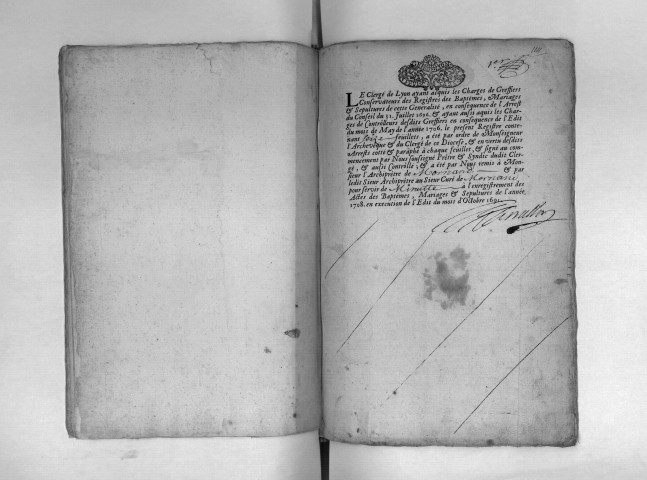 LE Clergé de Lyon ayant acquis les Charges de Greffiers
Conservateurs des Registres des Baptêmes, Mariages
& Sepultures de cette Generalité, en consequence de l'Arrest
du Conseil du 31. Juillet 1696. & ayant aussi aquis les Char-
ges de Controlleurs desdits Greffiers en consequence de l'Edit
du mois de May de l'année 1706. le present Registre conte-
nant feuillets, a été par ordre de Monseigneur
l'Archevêque & du Clergé de ce Diocese, & en vertu desdits
Arrests cotté & paraphé à chaque feuillet, & signé au com-
mencement par Nous soussigné Prêtre & Syndic dudit Cler-
gé, & aussi Controllé, & a été par Nous remis à Mon-
sieur l'Archiprêtre de Mornand & par
ledit Sieur Archiprêtre au Sieur Curé de Mornand
pour servir de Minutte à l'enregistrement des
Actes des Baptêmes, Mariages & Sepultures de l'année
1708. en execution de l'Edit du mois d'Octobre 1691.